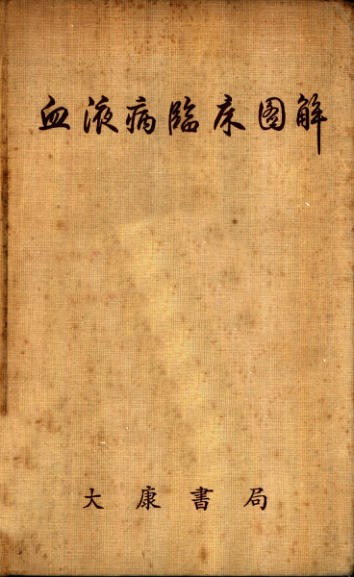 血液病臨床图解
大康書局